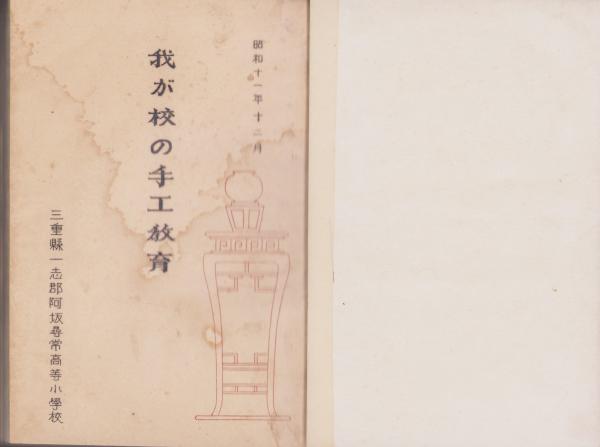 昭和十一年十二月
我が校の手工教育
三重縣一志郡阿坂尋常高等小學校